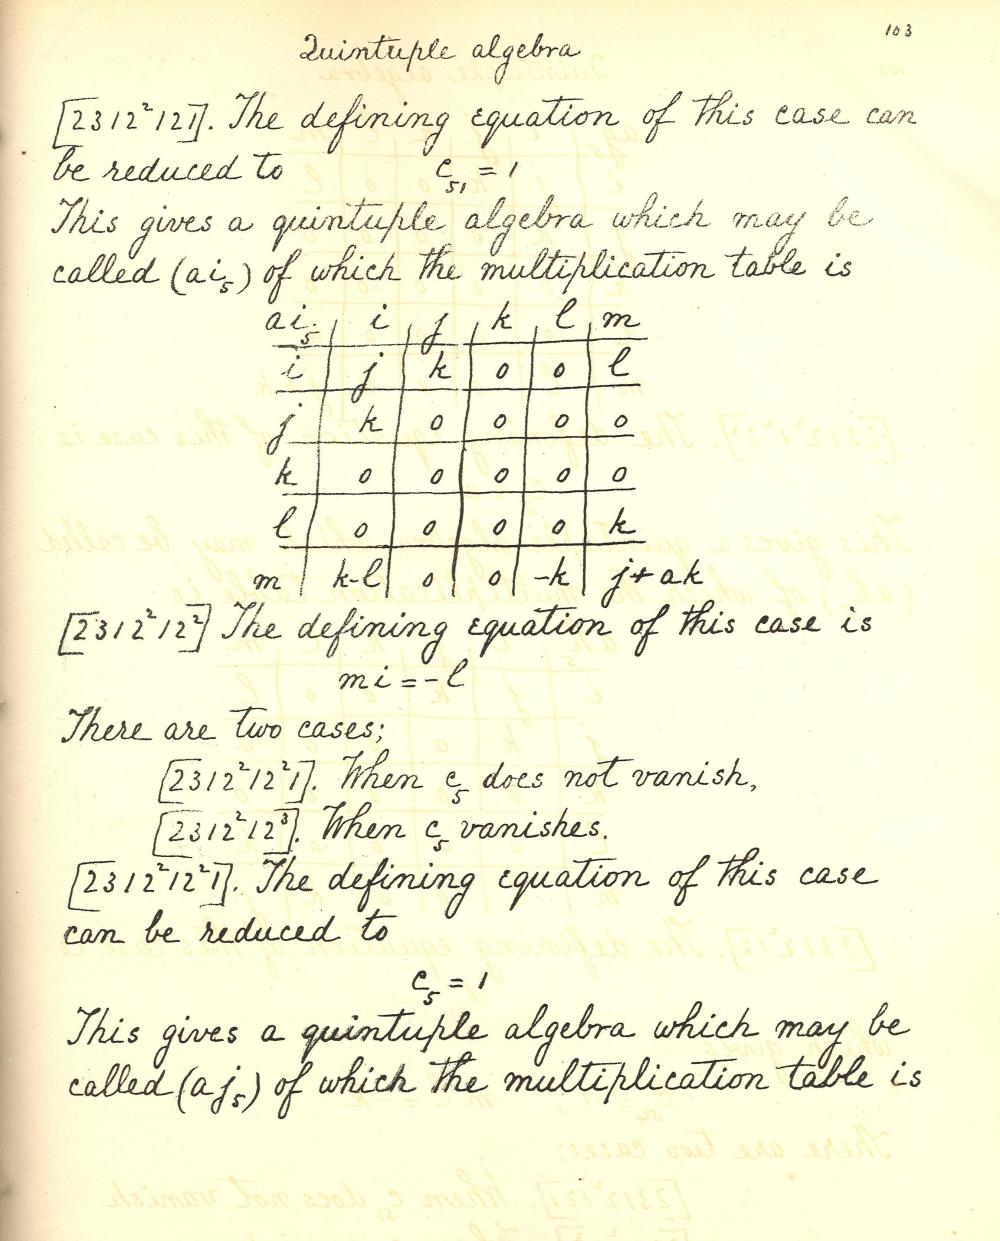 103
Quintuple algebra
[2312²121]. The defining equation of this case can
be reduced to c₅₁ = 1
This gives a quintuple algebra which may be
called (ai₅) of which the multiplication table is
ai₅ i j k l m
i j k 0 0 l
j k 0 0 0 0
k 0 0 0 0 0
l 0 0 0 0 k
m k-l 0 0 -k j+ak
[2312²12²] The defining equation of this case is
mi = -l
There are two cases;
[2312²12²1]. When c₅ does not vanish,
[2312²12³]. When c₅ vanishes.
[2312²12²1]. The defining equation of this case
can be reduced to
c₅ = 1
This gives a quintuple algebra which may be
called (aj₅) of which the multiplication table is